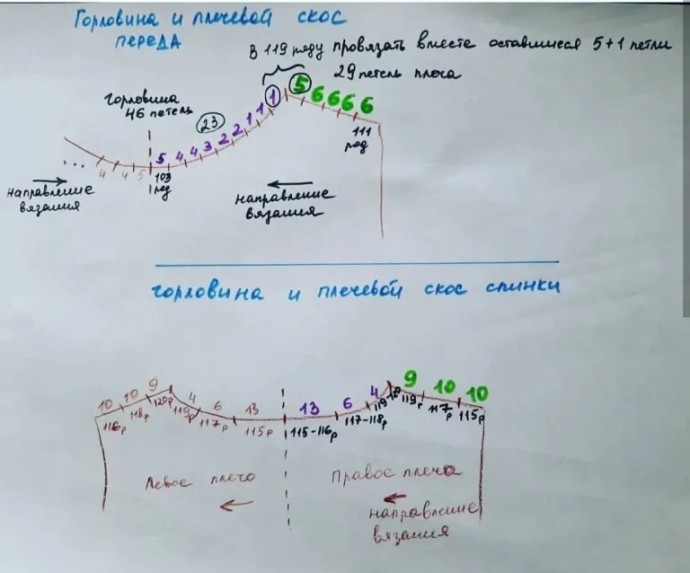 Горловина и плечевой скос
ПЕРЕДА
В 119 ряду провязать вместе оставшиеся 5+1 петли
29 петель плеча
горловина
46 петель
23
5 4 4 3 2 2 1 1 1
5 6 6 6 6
111
ряд
... 4 4 5
103
ряд
направление
вязания
направление
вязания
горловина и плечевой скос спинки
10 10 9 4 6 13
116р 118р 120р 119р 117р 115р
13 6 4
115-116р 117-118р 119
9 10 10
119р 117р 115р
Левое плечо
Правое плечо
направление
вязания